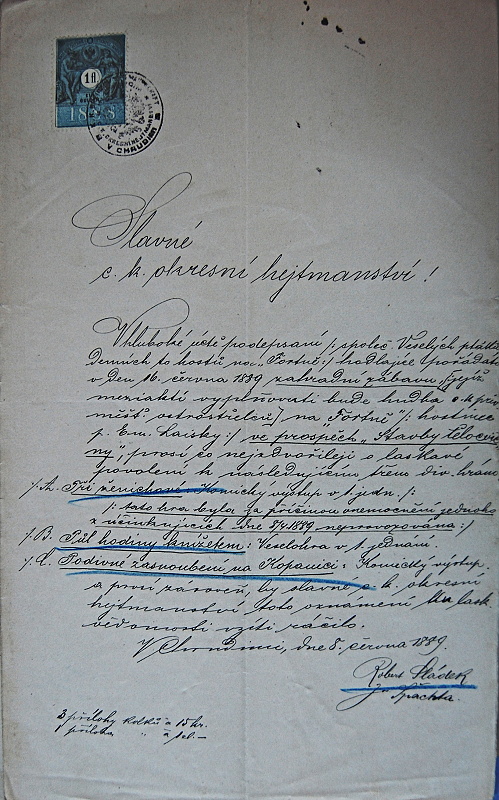 1 fl
1888
V CHRUDIMI
Slavné
c. k. okresní hejtmanství!
V hluboké úctě podepsaní /: společ. Veselých ptáků
denních to hostů na „Fortně":/ hodlajíce pořádati
v den 16. června 1889 zahradní zábavu [jejíž
meziaktí vyplňovati bude hudba c. k. priv.
měšť. ostrostřelců] na „Fortně" /: hostinec
p. Em. Laisky:/ ve prospěch „Stavby Tělocvič
ny", prosí co nejzdvořileji o laskavé
povolení k následujícím třem div. hrám
/. A. Tři ženichové = Komický výstup v 1. jedn. /:
/: tato hra byla za příčinou onemocnění jednoho
z účinkujících dne 5/4 1889 neprovozována :/
/. B. Půl hodiny knížetem: Veselohra v 1. jednání.
/. C. Podivné zasnoubení na Kopanici: Komický výstup.
a prosí zároveň, by slavné c. k. okresní
hejtmanství toto oznámení ku lask.
vědomosti vzíti ráčilo.
V Chrudimi, dne 8. června 1889.
Robert Sládek
Špachta.
3 přílohy kolků à 15 kr.
1 příloha " à 1 zl. –